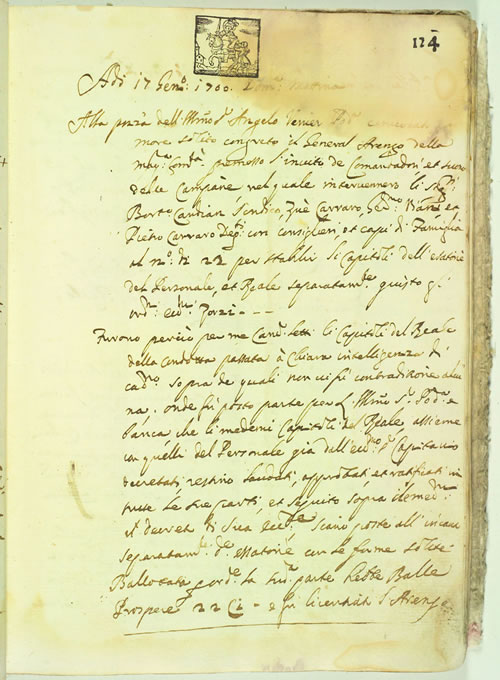 124
Adi 17 Gen.º 1700.
Alla pnza dell Illmo S.r Angelo Venier Pod.
more solito congreto il General Arengo della
mag.ca Com.tà premesso l'invito de Comandadri, et suono
delle Campane nel quale intervennero li
Bort.º Candian Sindico, Zuè Carraro,
Pietro Carraro Deg.i con consiglieri, et capi di Famiglia
al n.º di 22 per stabilir li Capitoli dell'esatorie
del Personale, et Reale separatam.te giusto gl
ord.ni Zorzi - - -
Furono perciò per me Canc.r letti li Capitoli del Reale
della Condotta passata à chiara intelligenza di
cad.no sopra de quali non vi fù contraditione alcu
na. onde fù posto parte per l Illmo S.r Pod.à e
banca che li medemi Capitoli del Reale, assieme
con quelli del Personale già dall'ecc.mo S.r Capitanio
decretati restino laudati, approbati et ratificati in
tutte le sue parti, et seguito sopra
il decreto di Sua ecc.za siano poste all'incanto
separatam.te d.e esatorie con le forme solite
Ballotata parte hebbe Balle
Prospere 22 C.i - e fù licentiato l'Arengo